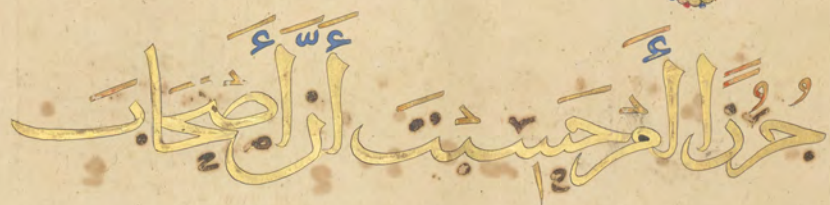 جُرُزًا أَمْ حَسِبْتَ أَنَّ أَصْحَابَ